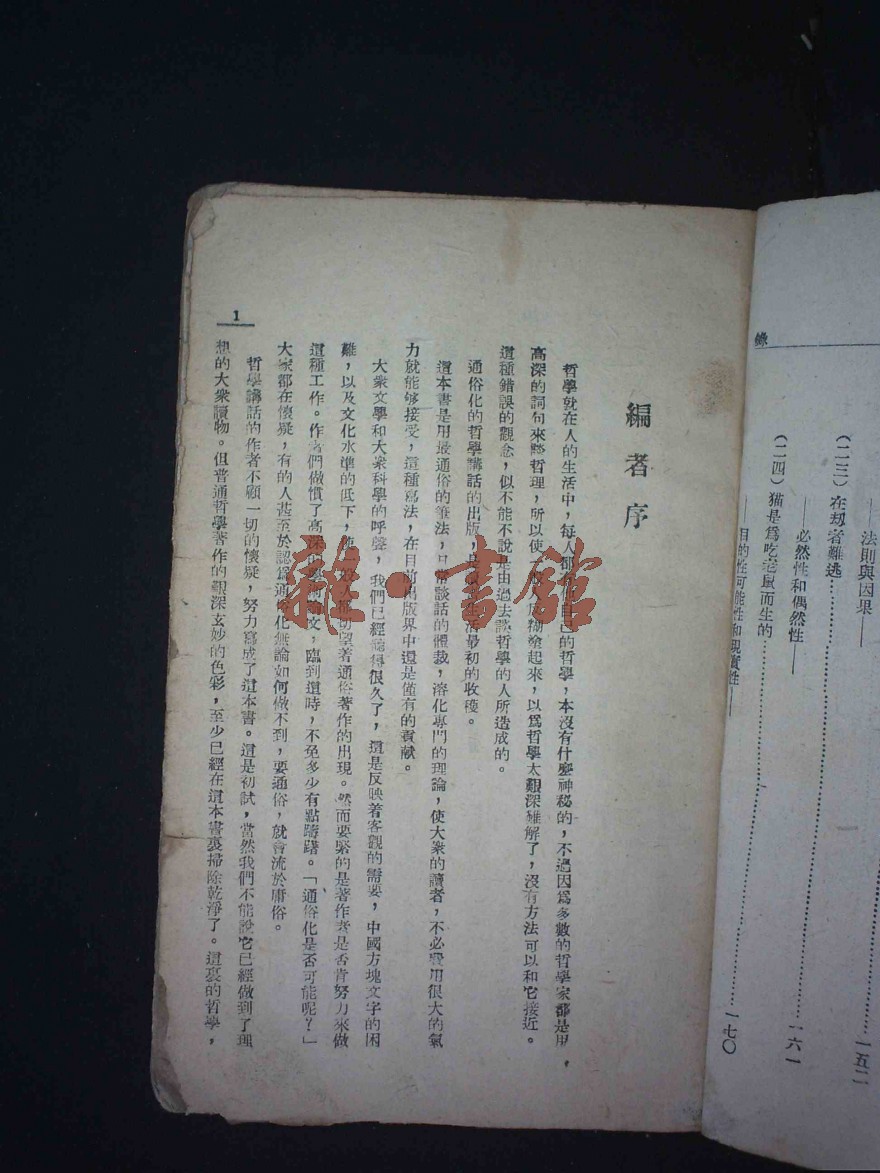 錄
——法則與因果——……一五二
(二三)在刼者難逃……
——必然性和偶然性——
(二四)猫是爲吃老鼠而生的……一六一
——目的性可能性和現實性——……一七〇
編者序
哲學就在人的生活中,每人都有他自己的哲學,本沒有什麼神秘的,不過因爲多數的哲學家都是用,
高深的詞句來談哲理,所以使一般人底糊塗起來,以爲哲學太艱深難解了,沒有方法可以和它接近。
這種錯誤的觀念,似不能不說是由過去談哲學的人所造成的。
通俗化的哲學講話的出版,是讀書生活最初的收穫。
這本書是用最通俗的筆法,日常談話的體裁,溶化專門的理論,使大衆的讀者,不必費用很大的氣
力就能够接受,這種寫法,在目前出版界中還是僅有的貢献。
大衆文學和大衆科學的呼聲,我們已經聽得很久了,這是反映着客觀的需要,中國方塊文字的困
難,以及文化水準的低下,使一般人都切望著通俗著作的出現。然而要緊的是著作者是否肯努力來做
這種工作。作者們做慣了高深的學術論文,臨到這時,不免多少有點躊躇。「通俗化是否可能呢?」
大家都在懷疑,有的人甚至於認爲通俗化無論如何做不到,要通俗,就會流於庸俗。
哲學講話的作者不顧一切的懷疑,努力寫成了這本書。這是初試,當然我們不能說它已經做到了理
想的大衆讀物。但普通哲學著作的艱深玄妙的色彩,至少已經在這本書裏掃除乾淨了。這裏的哲學,
1
雜·書館